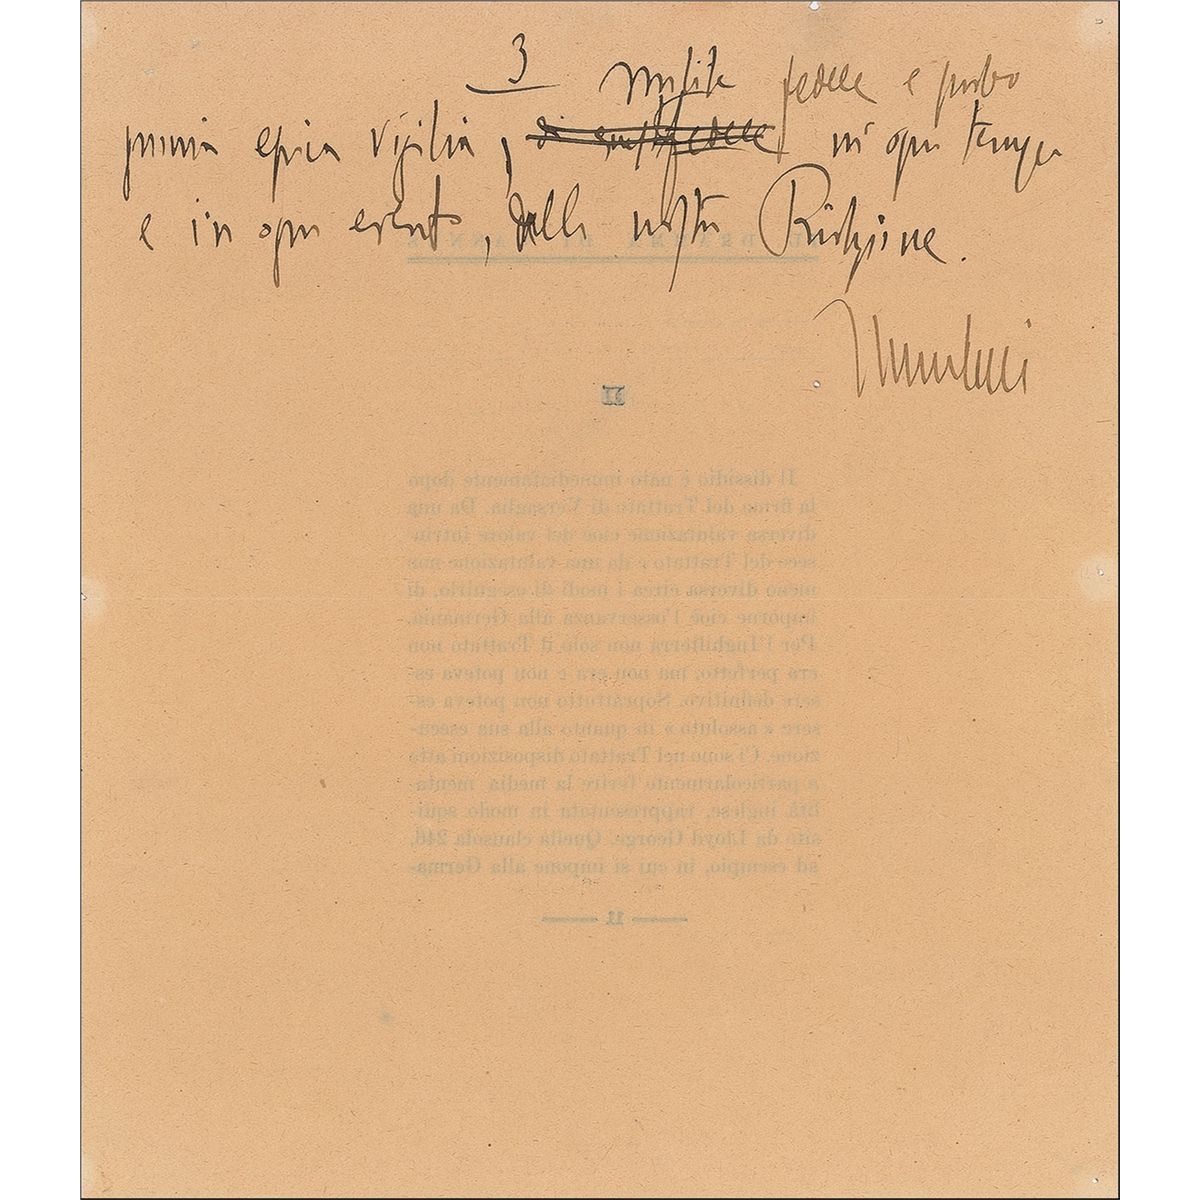 3
milite fedele e probo
prima epica vigilia, di milite fedele in ogni tempo
e in ogni evento, della nostra Rivoluzione.
Mussolini
IL DRAMA DI CANNES
II
Il dissidio è nato immediatamente dopo
la firma del Trattato di Versaglia. Da una
diversa valutazione cioè del valore intrin-
seco del Trattato e da una valutazione non
meno diversa circa i modi di eseguirlo, di
imporne cioè l'osservanza alla Germania.
Per l'Inghilterra non solo il Trattato non
era perfetto, ma non era e non poteva es-
sere definitivo. Soprattutto non poteva es-
sere « assoluto » di quanto alla sua esecu-
zione. Ci sono nel Trattato disposizioni atte
a particolarmente ferire la media menta-
lità inglese, rappresentata in modo squi-
sito da Lloyd George. Quella clausola 246,
ad esempio, in cui si impone alla Germa-
— 11 —